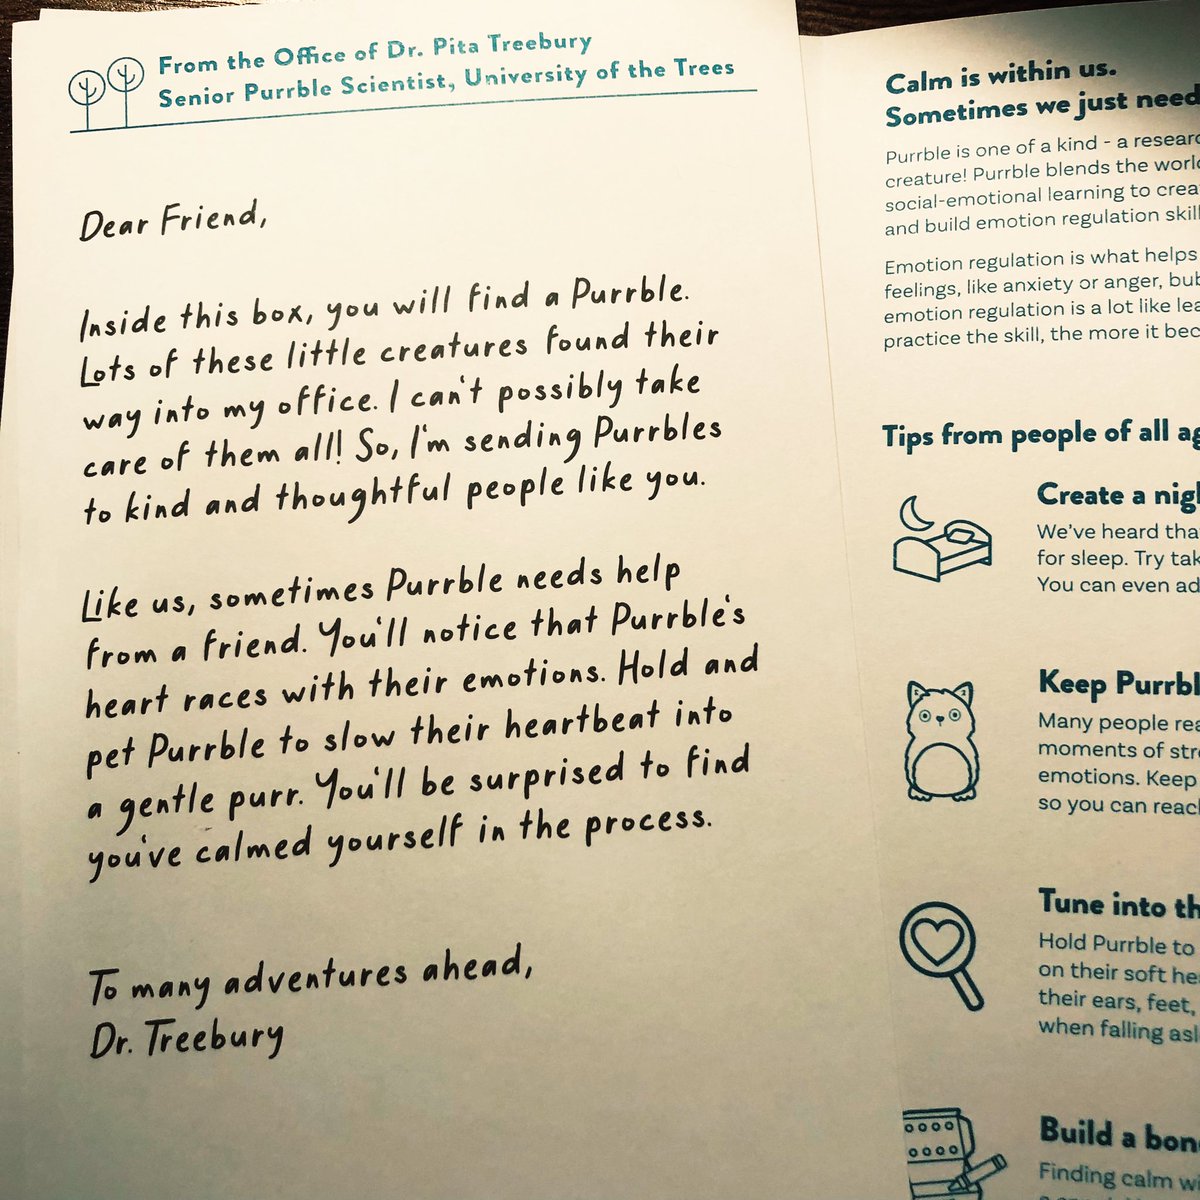 From the Office of Dr. Pita Treebury
Senior Purrble Scientist, University of the Trees
Dear Friend,
Inside this box, you will find a Purrble.
Lots of these little creatures found their
way into my office. I can't possibly take
care of them all! So, I'm sending Purrbles
to kind and thoughtful people like you.
Like us, sometimes Purrble needs help
from a friend. You'll notice that Purrble's
heart races with their emotions. Hold and
pet Purrble to slow their heartbeat into
a gentle purr. You'll be surprised to find
you've calmed yourself in the process.
To many adventures ahead,
Dr. Treebury
Calm is within us.
Sometimes we just need
Purrble is one of a kind - a
creature! Purrble blends the
social-emotional learning to
and build emotion regulation
Emotion regulation is what helps
feelings, like anxiety or anger,
emotion regulation is a lot like
practice the skill, the more it
Tips from people of all
Create a
We've heard
for sleep. Try
You can even
Keep
Many people
moments of
emotions. Keep
so you can
Tune into
Hold Purrble to
on their soft
their ears, feet,
when falling
Build a
Finding calm